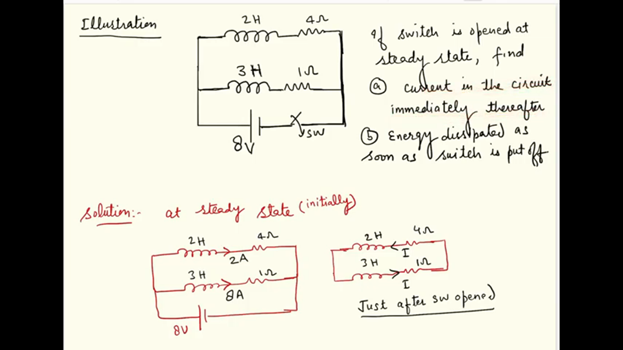 Illustration
2H
4Ω
3H
1Ω
8V
SW
If switch is opened at
steady state, find
(a) current in the circuit
immediately thereafter
(b) Energy dissipated as
soon as switch is put off
Solution:- at steady state (initially)
2H
4Ω
2A
3H
1Ω
8A
8V
2H
4Ω
I
3H
1Ω
I
Just after SW opened